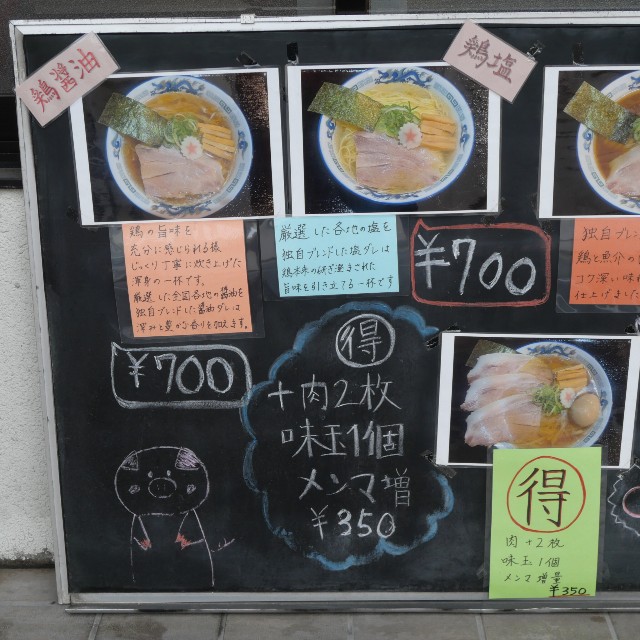 鶏醤油
鶏塩
鶏の旨味を
充分に感じられる様
じっくり丁寧に炊き上げた
渾身の一杯です。
厳選した全国各地の醤油を
独自ブレンドした醤油ダレは
深みと豊かな香りを加えます。
厳選した各地の塩を
独自ブレンドした塩ダレは
鶏本来の研ぎ澄まされた
旨味を引き立てる一杯です
¥700
独自ブレン
鶏と魚介の
コク深い味わ
仕上げました
¥700
得
+肉2枚
味玉1個
メンマ増
¥350
得
肉+2枚
味玉1個
メンマ増量
¥350